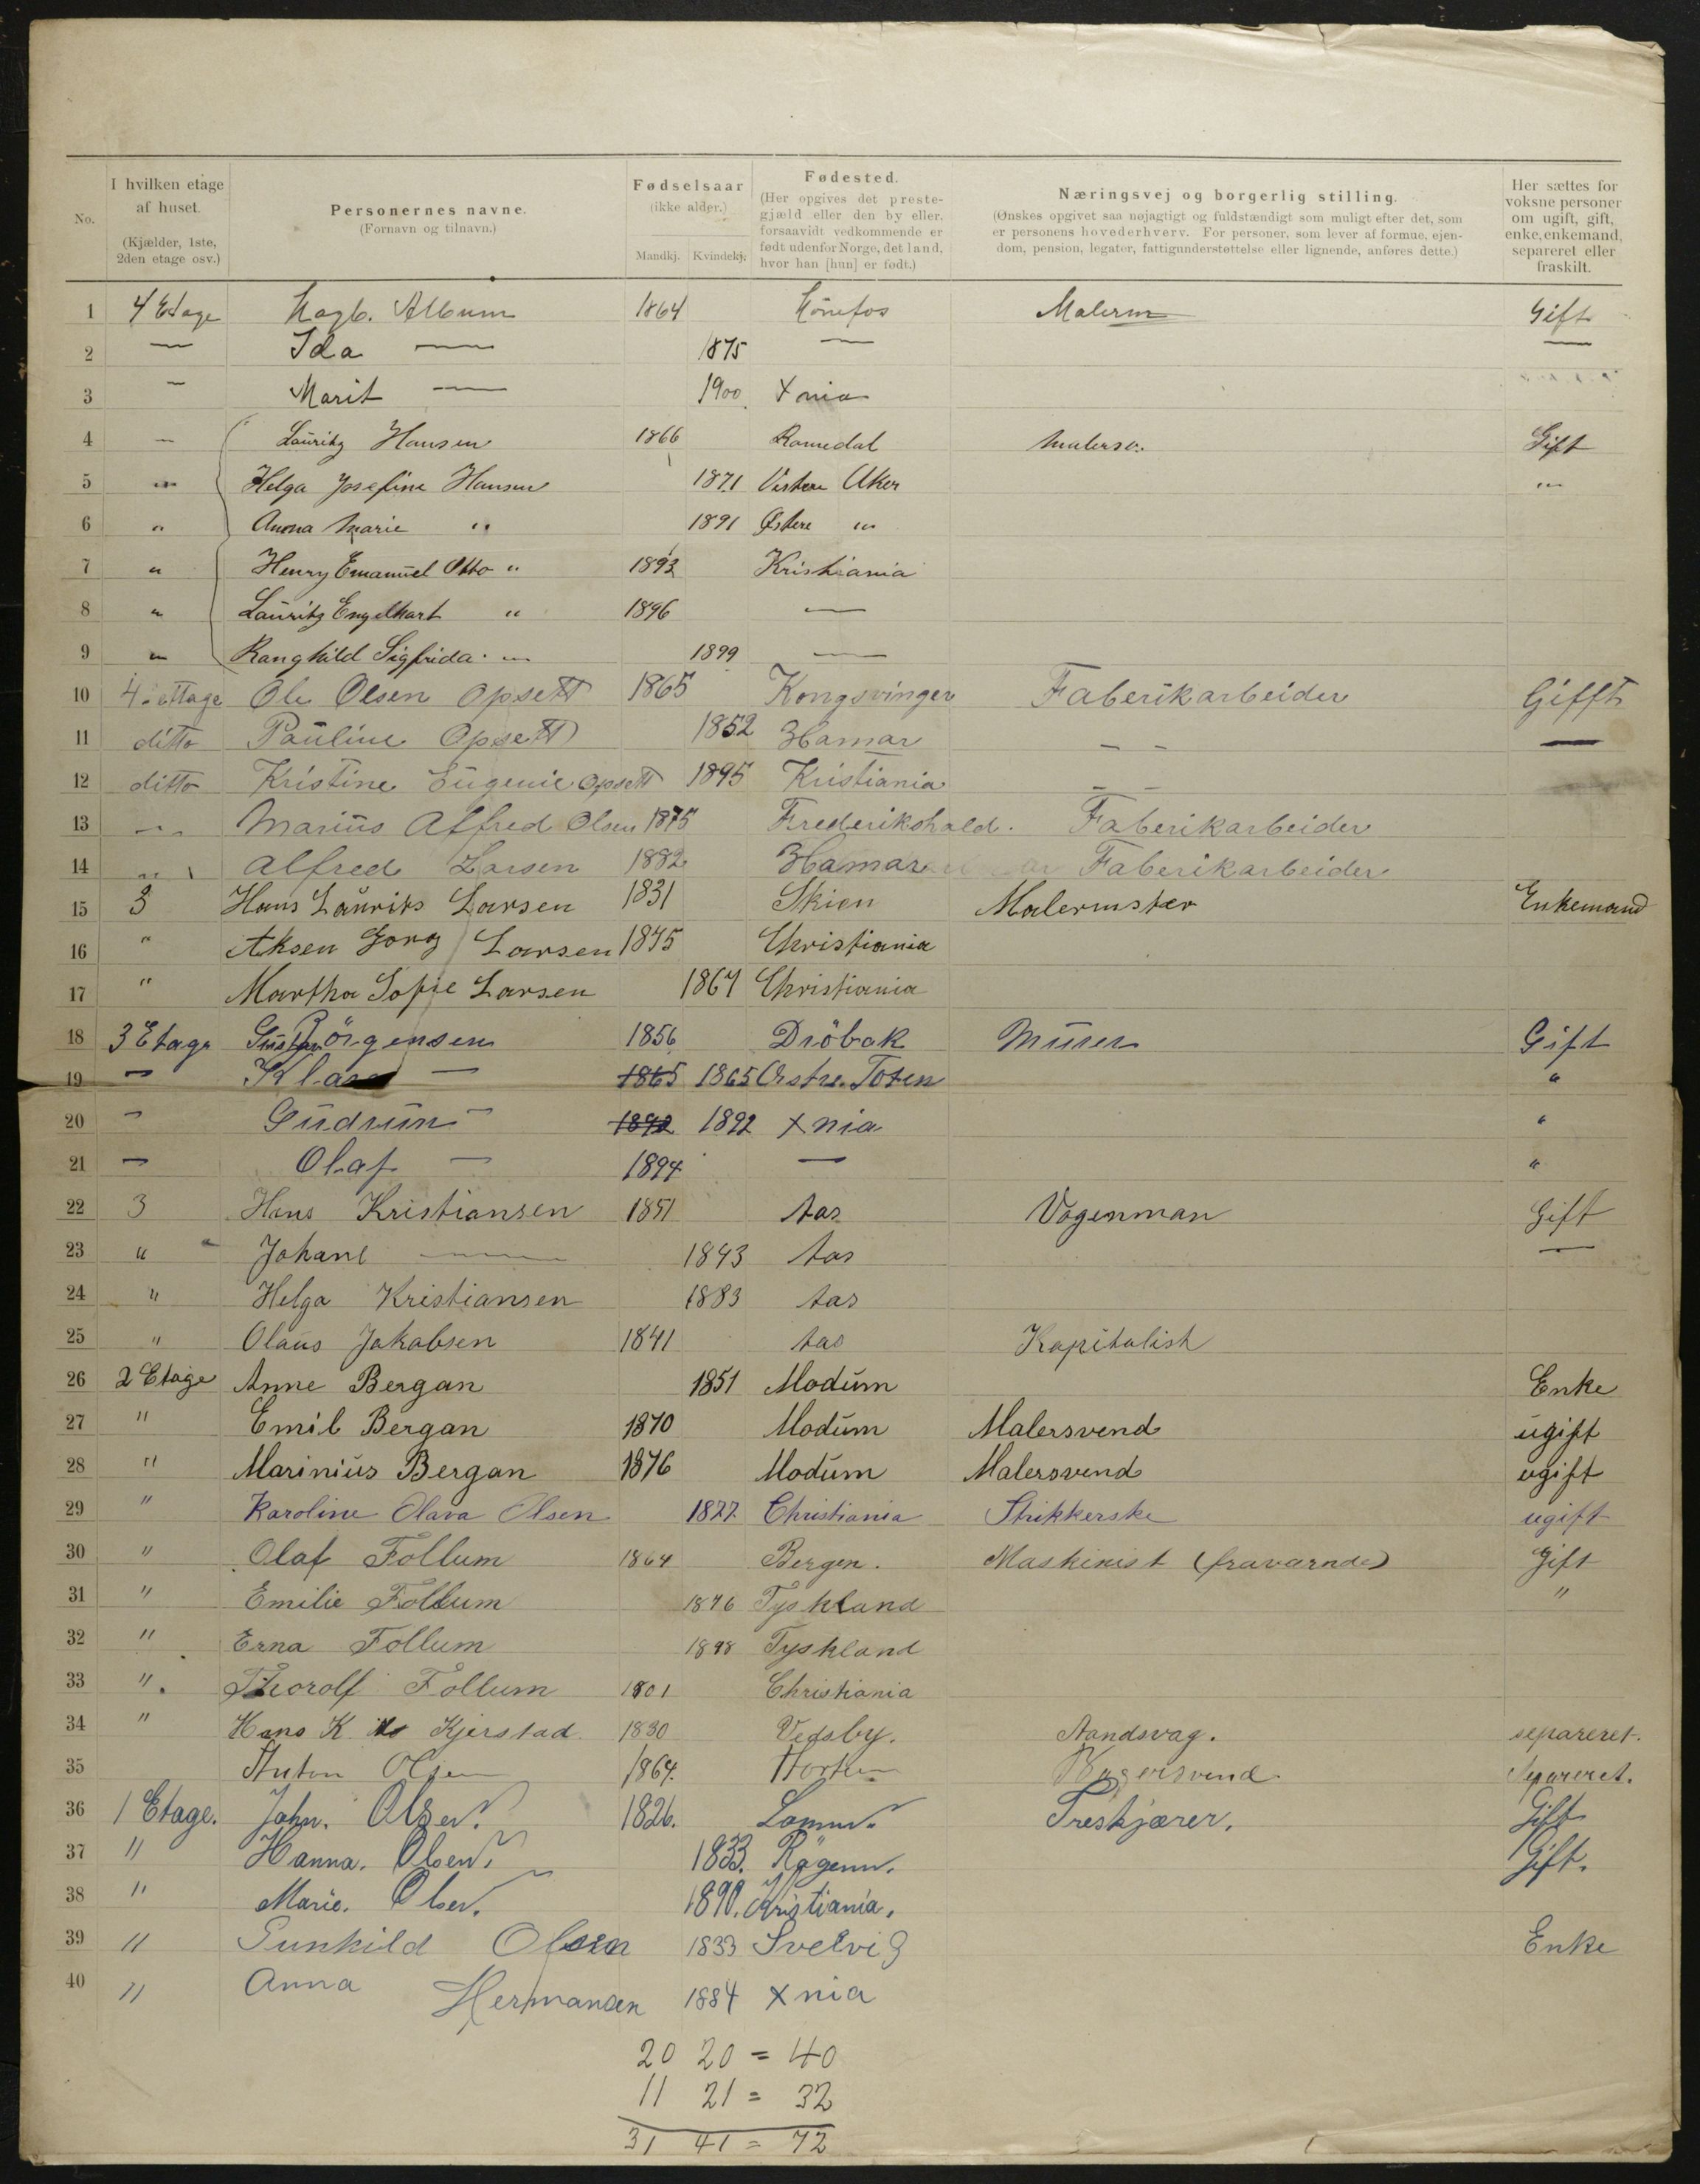 No.
I hvilken etage af huset. (Kjælder, 1ste, 2den etage osv.)
Personernes navne. (Fornavn og tilnavn.)
Fødselsaar (ikke alder.) Mandkj. Kvindekj.
Fødested. (Her opgives det prestegjæld eller den by eller, forsaavidt vedkommende er født udenfor Norge, det land, hvor han [hun] er født.)
Næringsvej og borgerlig stilling. (Ønskes opgivet saa nøjagtigt og fuldstændigt som muligt efter det, som er personens hovederhverv. For personer, som lever af formue, ejendom, pension, legater, fattigunderstøttelse eller lignende, anføres dette.)
Her sættes for voksne personer om ugift, gift, enke, enkemand, separeret eller fraskilt.
1 4 Etage Album 1864 Hønefos Malerm Gift
2 — Ida — 1875 — —
3 — Marit — 1900 Xnia
4 — Lauritz Hansen 1866 Romedal malersv. Gift
5 " Helga Josefine Hansen 1871 Vestre Aker "
6 " Anna Marie " 1891 Østere "
7 " Henry Emanuel Otto " 1893 Kristiania
8 " Lauritz Engelhart " 1896 —
9 " Ranghild Sigfrida " 1899 —
10 4. ettage Ole Olsen Opsett 1865 Kongsvinger Faberikarbeider Gifft
11 ditto Pauline Opsett 1852 Hamar — — —
12 ditto Kristine Eugenie Opsett 1895 Kristiania — —
13 " Marius Alfred Olsen 1875 Frederikshald. Faberikarbeider
14 " Alfred Larsen 1882 Hamar Faberikarbeider
15 3 Hans Laurits Larsen 1831 Skien Malermster Enkemand
16 " Aksen Jorg Larsen 1875 Christiania
17 " Martha Sofie Larsen 1867 Christiania
18 3 Etage Gustav Jörgensen 1856 Dröbak Murer Gift
19 — Klara — 1865 1865 Østre Toten "
20 — Gudrun — 1892 1892 Xnia "
21 — Olaf — 1894 — "
22 3 Hans Kristiansen 1851 Aas Vogenman Gift
23 " Johane — 1843 Aas —
24 " Helga Kristiansen 1883 Aas
25 " Olaus Jakobsen 1841 Aas Kapitalist
26 2 Etage Anne Bergan 1851 Modum Enke
27 " Emil Bergan 1870 Modum Malersvend ugift
28 " Marinius Bergan 1876 Modum Malersvend ugift
29 " Karoline Olava Olsen 1877 Christiania Strikkerske ugift
30 " Olaf Follum 1864 Bergen. Maskinist (fravarnde) Gift
31 " Emilie Follum 1876 Tyskland "
32 " Erna Follum 1898 Tyskland
33 " Thorolf Follum 1901 Christiania
34 " Hans K. Kjerstad 1830 Vegsby. Aandsvag. separeret.
35 Anton Olsen 1864. Horten Separeret.
36 1 Etage. John. Olsen. 1826. Treskjærer. Gift
37 " Hanna. Olsen. 1833. Gift.
38 " Marie. Olsen. 1890. Kristiania.
39 " Gunhild Olsen 1833 Svelvig Enke
40 " Anna Hermansen 1884 Xnia
20 20 = 40
11 21 = 32
31 41 = 72